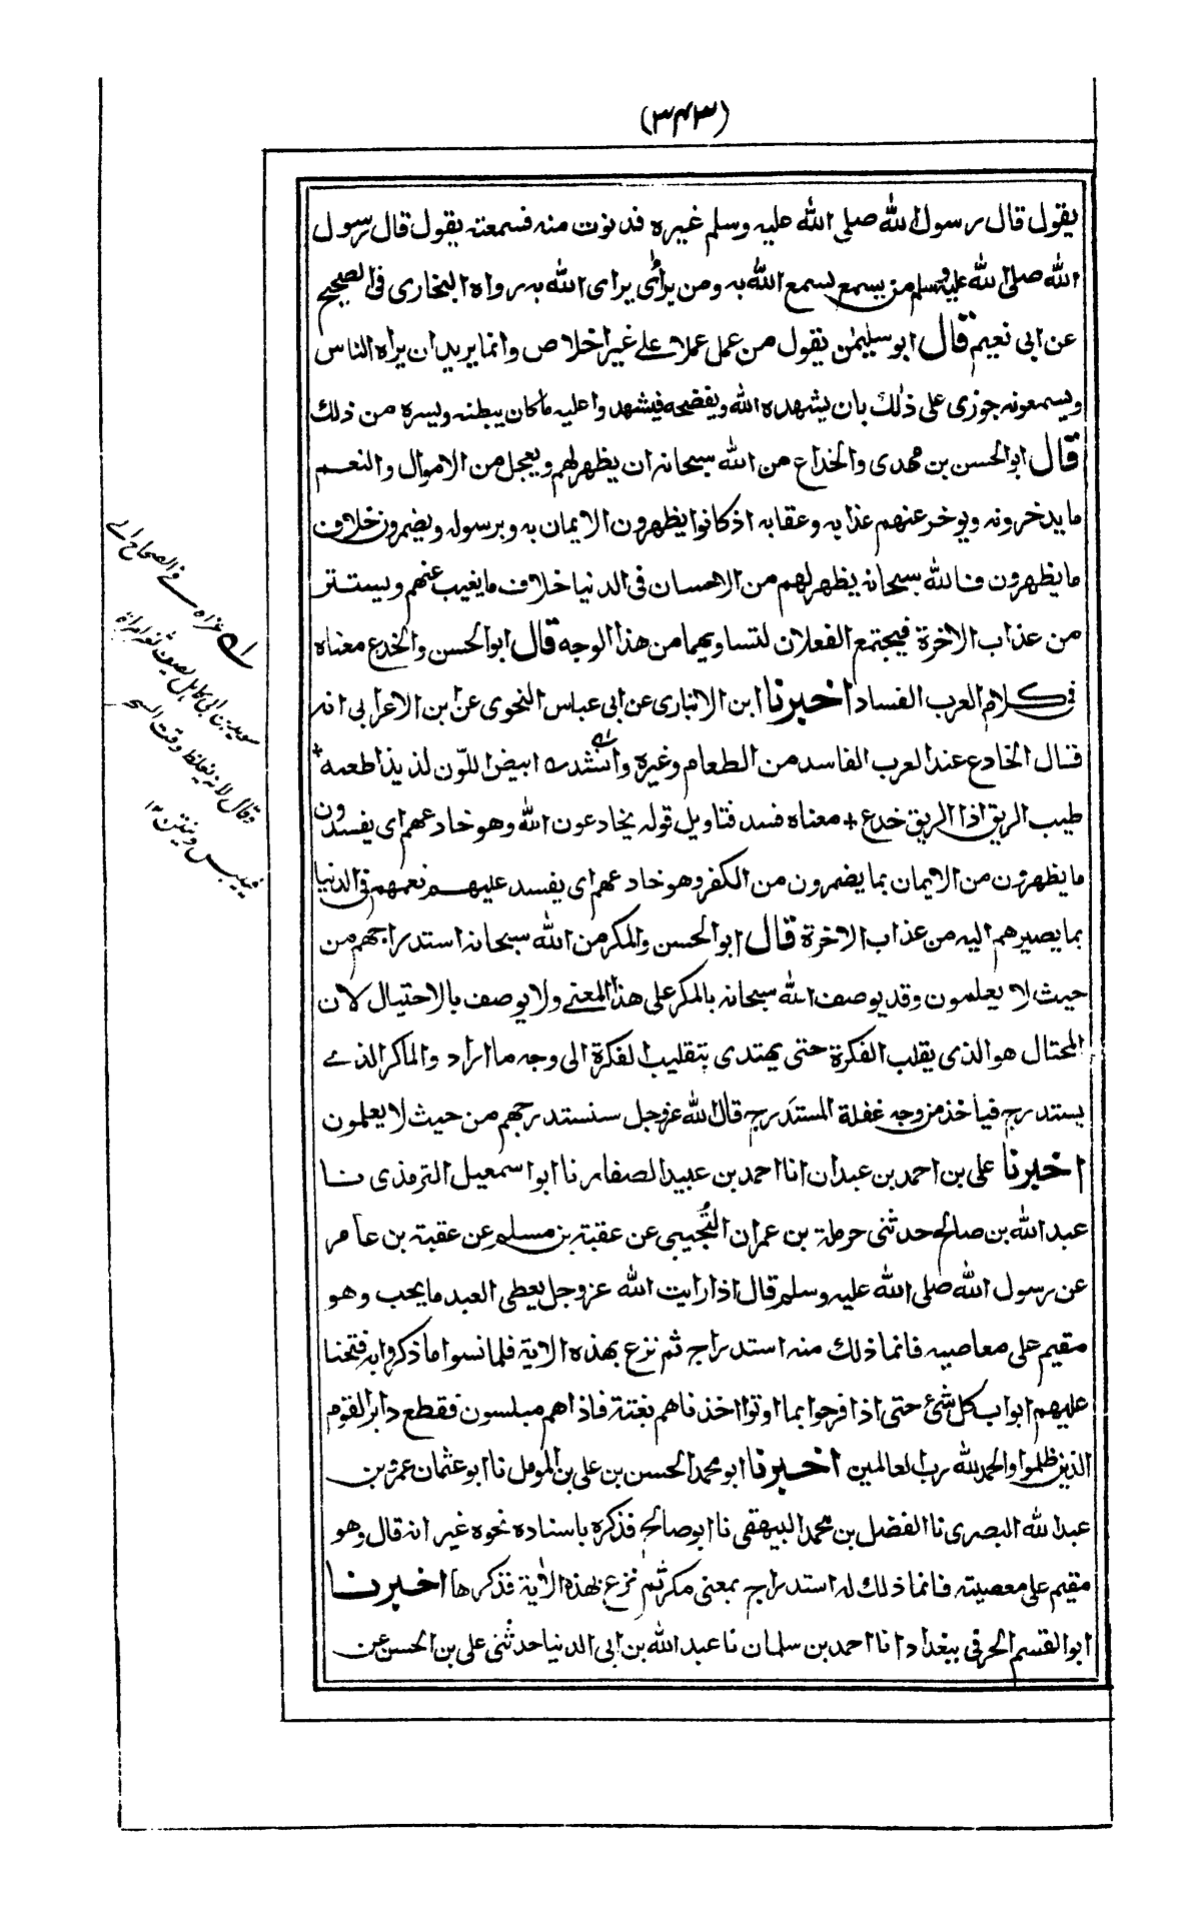 (٣٤٣)
يقول قال رسول الله صلى الله عليه وسلم غيره فدنوت منه فسمعته يقول قال رسول
الله صلى الله عليه وسلم من يسمع يسمع الله به ومن يرائى يراى الله به رواه البخارى فى الصحيح
عن ابى نعيم قال ابو سليمٰن يقول من عمل عملا على غير اخلاص وانما يريد ان يراه الناس
ويسمعونه جوزى على ذلك بان يشهده الله ويفضحه فيشهدوا عليه ما كان يبطنه ويسره من ذلك
قال ابو الحسن بن مهدى والخداع من الله سبحانه ان يظهر لهم ويعجل من الاموال والنعم
ما يدخرونه ويوخر عنهم عذابه وعقابه اذ كانوا يظهرون الايمان به وبرسوله ويضمرون خلاف
ما يظهرون فالله سبحانه يظهر لهم من الاحسان فى الدنيا خلاف ما يغيب عنهم ويستتر
من عذاب الاخرة فيجتمع الفعلان لتساويهما من هذا الوجه قال ابو الحسن والخدع معناه
فى كلام العرب الفساد اخبرنا ابن الانبارى عن ابى عباس النحوى عن ابن الاعرابى انه
قال الخادع عند العرب الفاسد من الطعام وغيره وانشد له ابيض اللون لذيذا طعمه *
طيب الريق اذا الريق خدع + معناه فسد فتاويل قوله يخادعون الله وهو خادعهم اى يفسدون
ما يظهرون من الايمان بما يضمرون من الكفر وهو خادعهم اى يفسد عليهم نعمهم فى الدنيا
بما يصيرهم اليه من عذاب الاخرة قال ابو الحسن والمكر من الله سبحانه استدراجهم من
حيث لا يعلمون وقد يوصف الله سبحانه بالمكر على هذا المعنے ولا يوصف بالاحتيال لان
المحتال هو الذى يقلب الفكرة حتى يهتدى بتقليب الفكرة الى وجه ما اراد والماكر الذے
يستدرج فياخذ من وجه غفلة المستدرج قال الله عز وجل سنستدرجهم من حيث لا يعلمون
اخبرنا على بن احمد بن عبدان انا احمد بن عبيد الصفار نا ابو اسمعيل الترمذى نا
عبد الله بن صالح حدثنى حرملة بن عمران التُجيبى عن عقبة بن مسلم عن عقبة بن عامر
عن رسول الله صلى الله عليه وسلم قال اذا رايت الله عز وجل يعطى العبد ما يحب وهو
مقيم على معاصيه فانما ذلك منه استدراج ثم نزع بهذه الاية فلما نسوا ما ذكروا به فتحنا
عليهم ابواب كل شئ حتى اذا فرحوا بما اوتوا اخذناهم بغتة فاذا هم مبلسون فقطع دابر القوم
الذين ظلموا والحمد لله رب العالمين اخبرنا ابو محمد الحسن بن على بن المومل نا ابو عثمان عمرو بن
عبد الله البصرى نا الفضل بن محمد البيهقى نا ابو صالح فذكره باسناده نحوه غير انه قال وهو
مقيم على معصيته فانما ذلك له استدراج بمعنى مكر ثم نزع بهذه الاٰية فذكرها اخبرنا
ابو القسم الحرفى ببغداد انا احمد بن سلمان نا عبد الله بن ابى الدنيا حدثنى على بن الحسن عن
له عزاه فے الصحاح الے
سويد بن ابى كاهل يصف ثغر امراة
وقال لانه يغلظ وقت السحر
فييبس وينتن ١٢